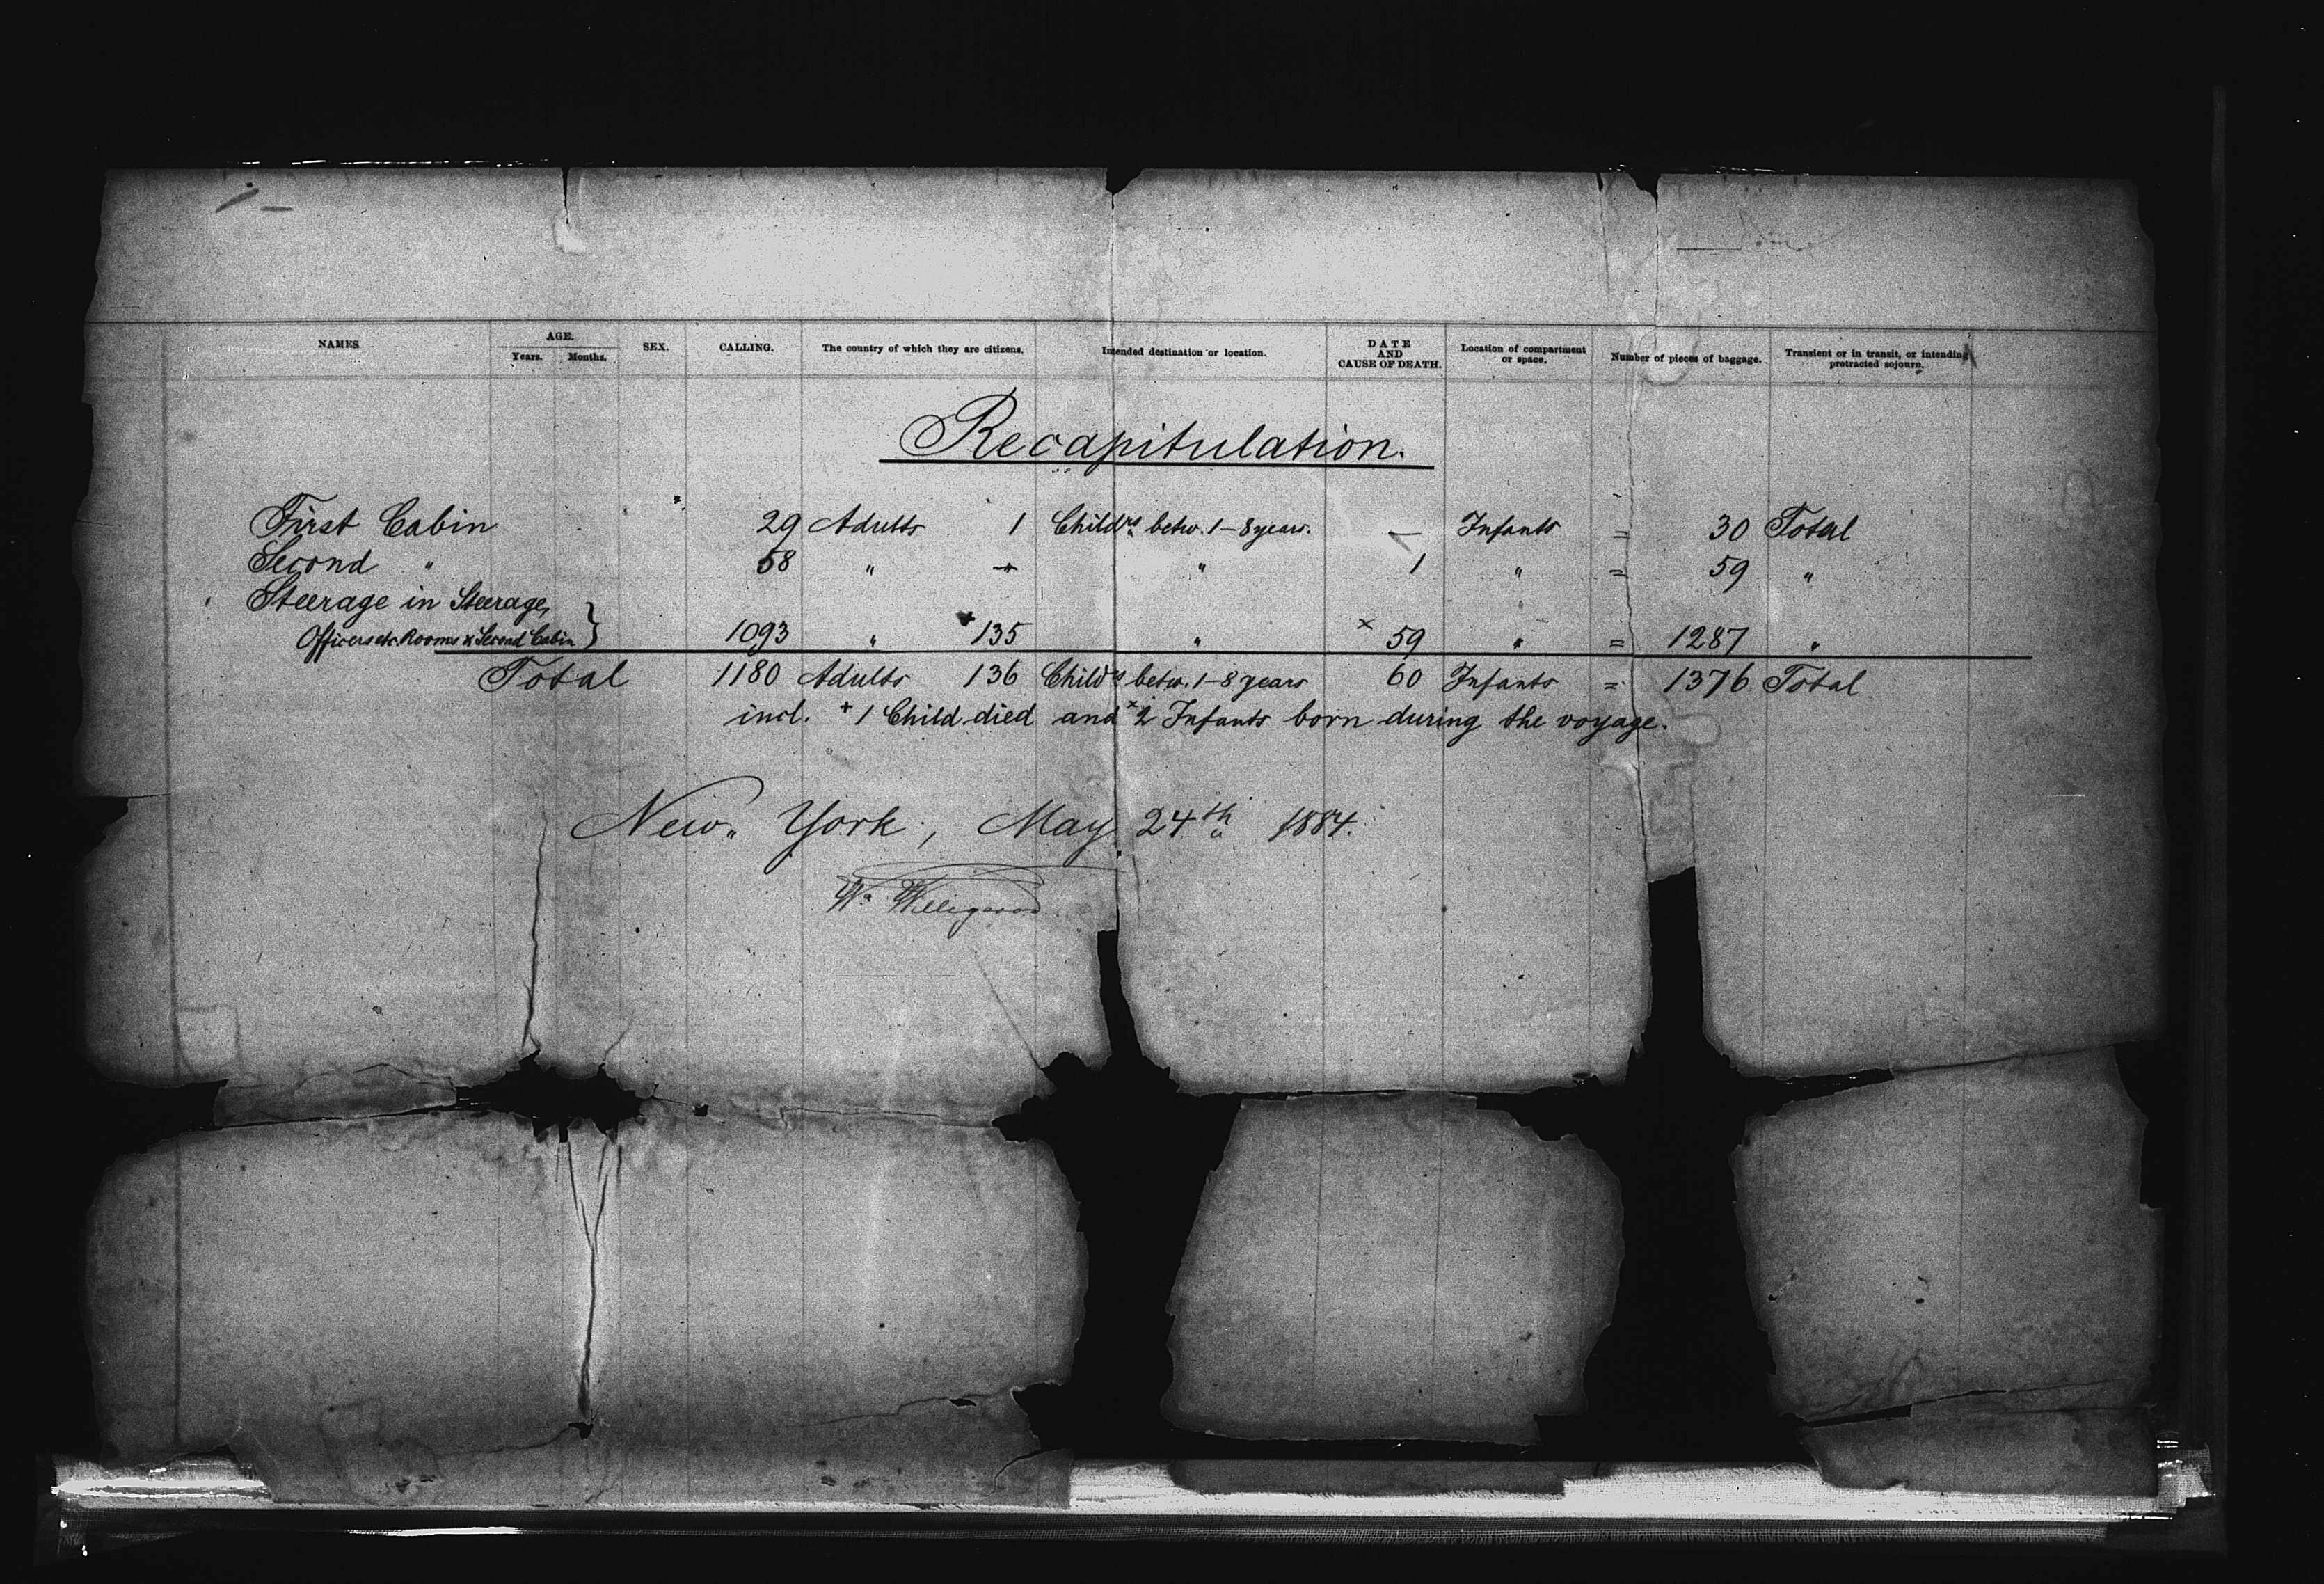 NAMES AGE. SEX. CALLING. The country of which they are citizens. Intended destination or location. DATE AND CAUSE OF DEATH. Location of compartment or space. Number of pieces of baggage. Transient or in transit, or intending protracted sojourn.
Years. Months.
Recapitulation.
First Cabin 29 Adults 1 Childrs betw. 1–8 years. — Infants = 30 Total
Second " 58 " — " 1 " = 59 "
Steerage in Steerage,
Officers etc. Rooms & Second Cabin } 1093 " + 135 " × 59 " = 1287 "
Total 1180 Adults 136 Childrs betw. 1–8 years 60 Infants = 1376 Total
incl. + 1 Child died and × 2 Infants born during the voyage.
New York, May 24th 1884.
W. Willigerod